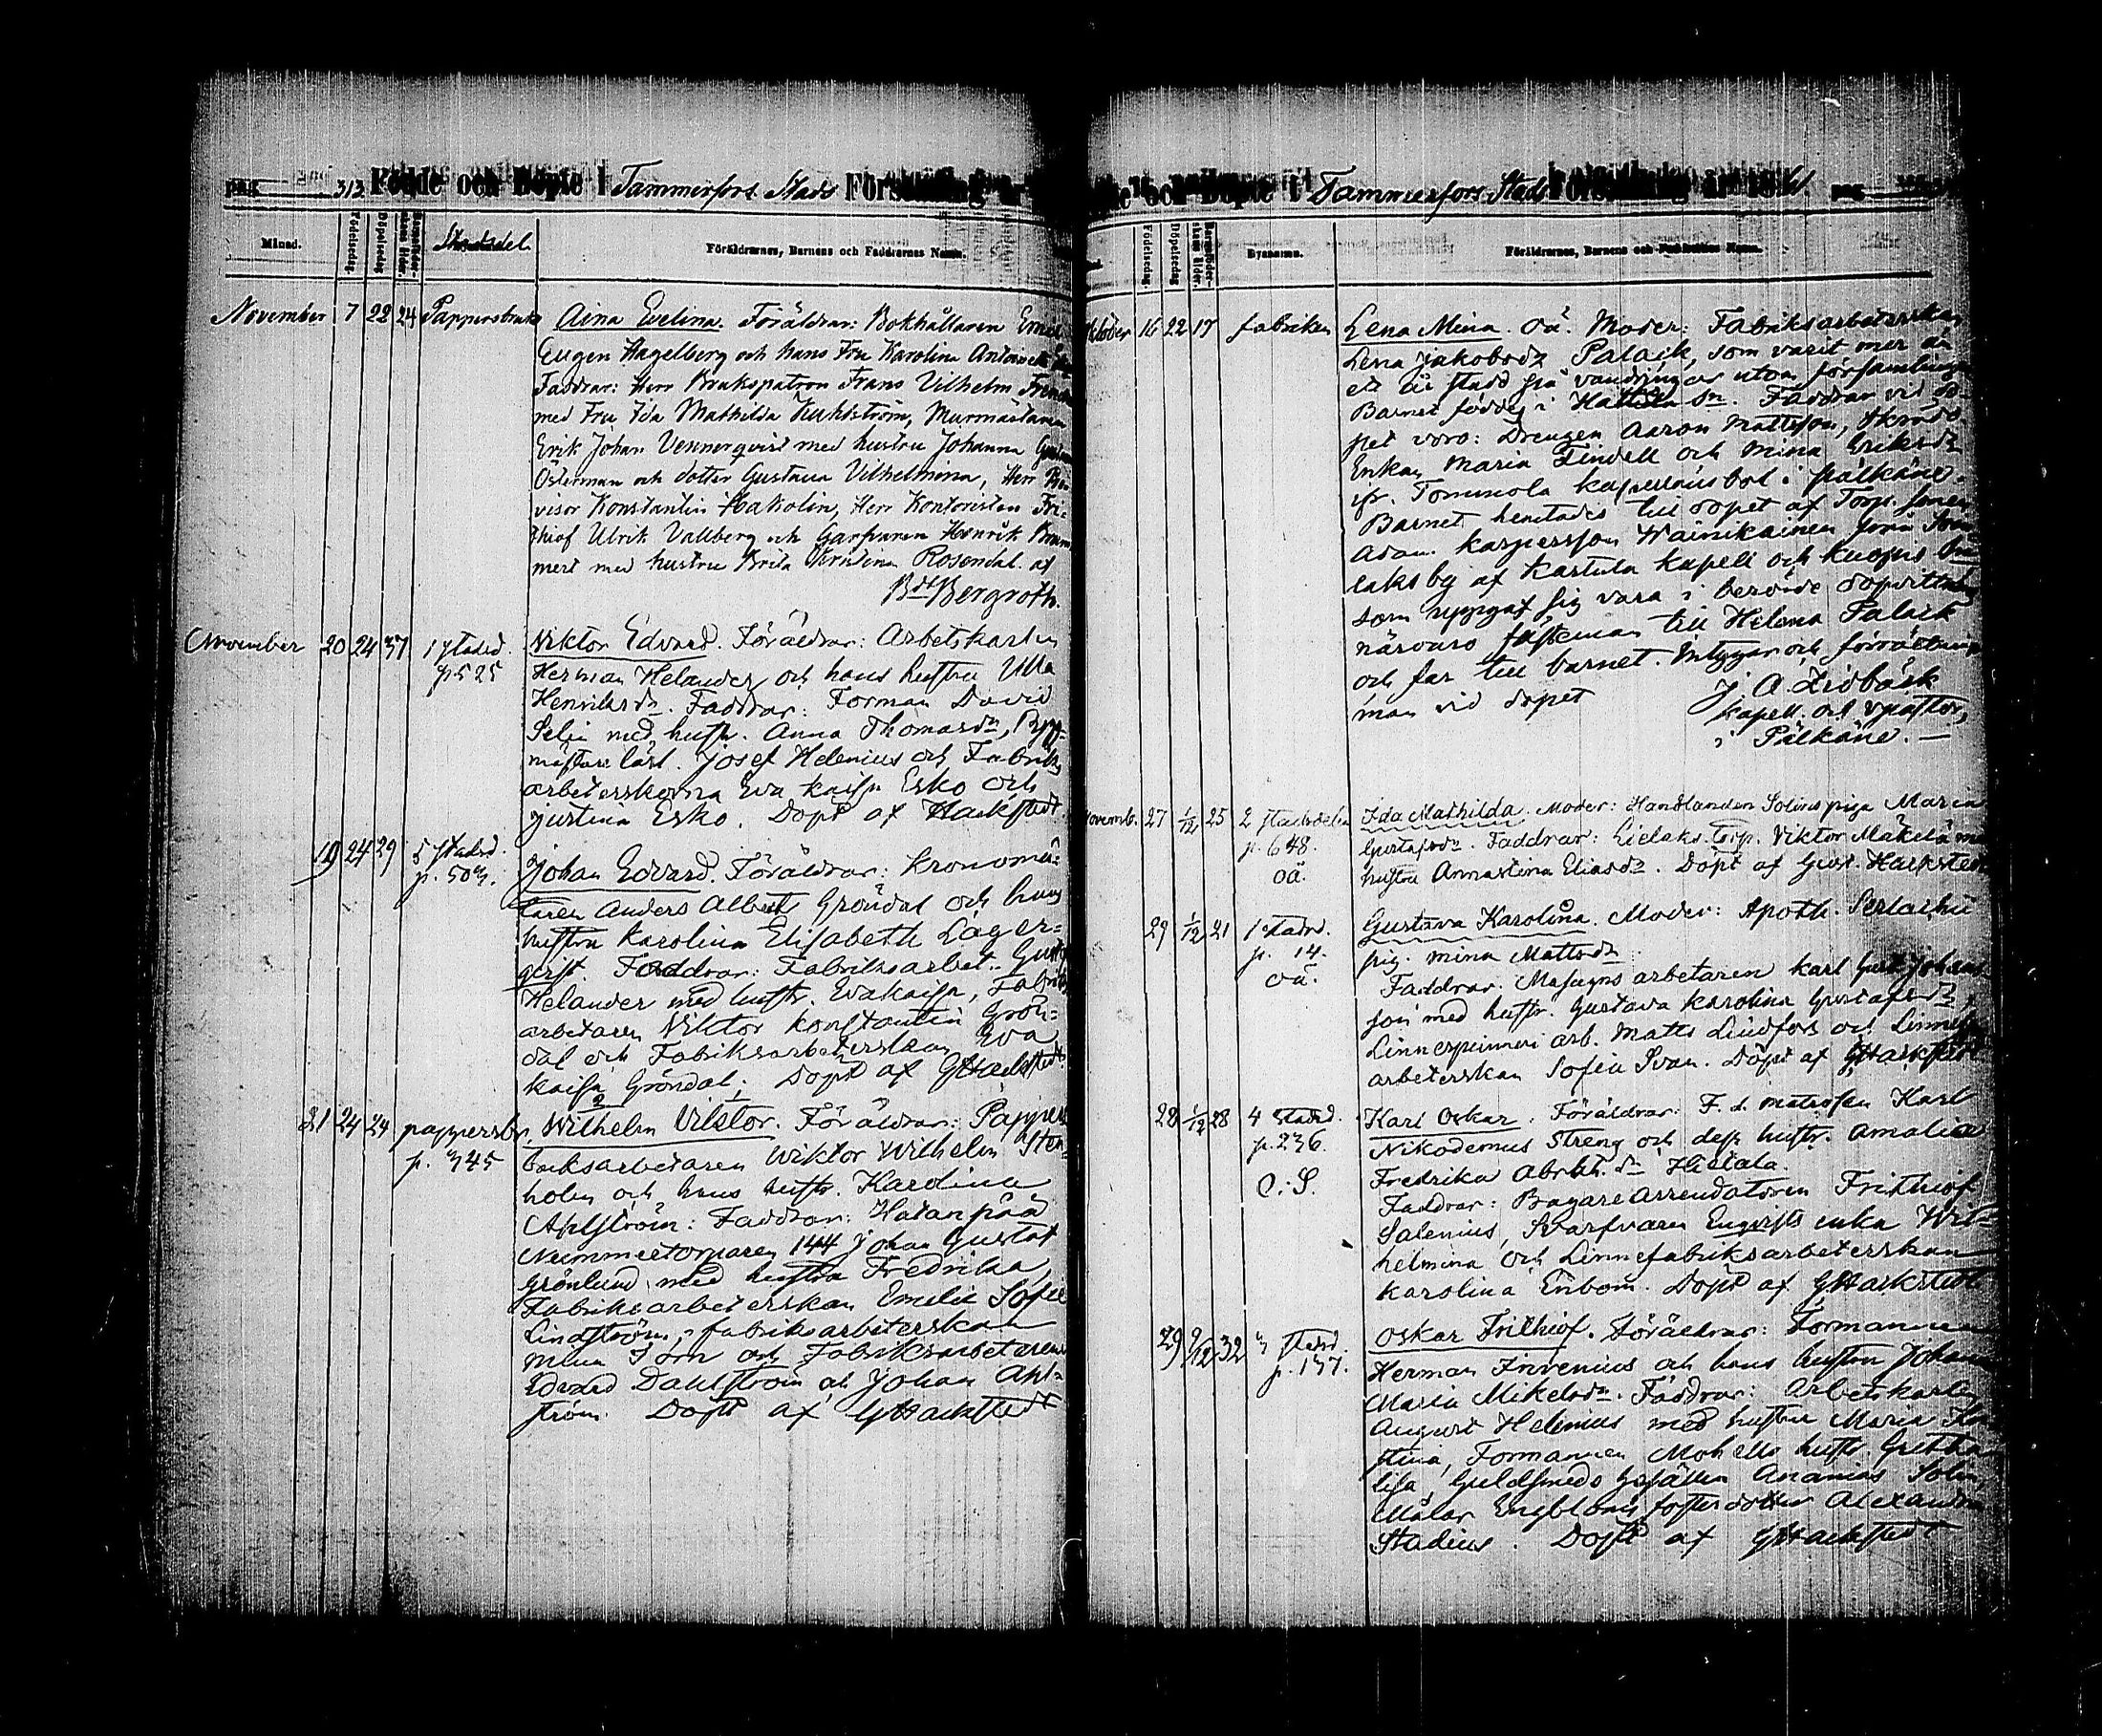 pag. 313 Födde och Döpte i Tammerfors Stads Församling
Månad. Födelsedag. Döpelsedag. Stadsdel Föräldrarnes, Barnens och Faddrarnes Namn.
November 7 22 24 Pappersbruk Aina Evelina. Föräldrar: Bokhållaren
Eugen Hagelberg och hans Fru Karolina
Faddrar: Herr Brukspatron Frans Vilhelm
med Fru Ida Mathilda Kuhlström, Murmästaren
Erik Johan Vennerqvist med hustru Johanna
Österman och dotter Gustava Vilhelmina, Herr
visor Konstantin Hakolin, Herr Kontoristen Fri-
thiof Ulrik Vallberg och Garfvaren Henrik
mert med hustru Brita Kristina Rosendal. af
Bergroth.
November 20 24 37 1 stadsd. Viktor Edvard. Föräldrar: Arbetskarlen
p 525 Herman Helander och hans hustru Ulla
Henriksdr. Faddrar: Forman David
Selin med hustr. Anna Thomasdr,
mästare lärl. Josef Helenius och Fabriks
arbeterskorna Eva Kaisa Esko och
Justina Esko. Döpt af Hackstedt
19 24 29 5 stadsd. Johan Edvard. Föräldrar: Kronomä-
p. 507. taren Anders Albert Gröndal och hans
hustru Karolina Elisabeth Lager-
qvist. Faddrar: Fabriksarbet.
Helander med hustr. Evakaisa,
arbetaren Viktor Konstantin Grön-
dal och Fabriksarbeterskan Eva
Kaisa Gröndal. Döpt af GHackstedt
21 24 24 pappersbr. Wilhelm Viktor. Föräldrar: Pappers
p. 345 bruksarbetaren Wiktor Wilhelm Sten-
holm och hans hustr. Karolina
Ahlström: Faddrar: Hatanpää
Nummertorparen 144 Johan Gustaf
Grönlund med hustru Fredrika
Fabriksarbeterskan Emelie Sofie
Lindström, fabriksarbeterskan
Mina och Fabriksarbetarene
Edvard Dahlström och Johan Ahl-
ström. Döpt af GHackstedt
och Döpte i Tammerfors Stads Församling år 18 pag.
Födelsedag. Döpelsedag. Byanamn. Föräldrarnes, Barnens och Faddrarnes Namn.
Oktober 16 22 17 fabriken Lena Mina. oä. Moder: Fabriksarbeterskan
Lena Jakobsdr Palaik, som varit mer än
ett år stadd på vandringar utom församlingen
Barnet föddes i Sn. Faddrar vid do-
pet voro: Drengen Aaron Mattsson,
Enkan Maria Lindell och Mina Eriksdr
fr. Tommola kapellansbol i Pälkäne.
Barnet hemtades till dopet af
Adam Kaspersson Wainikainen från
laks by af Karttula kapell och Kuopio
som uppgaf sig vara i berörde
närvaro fästeman till Helena Palaik
och far till barnet. Intygar och förrättnings
man vid dopet J. A. Lidbäck
kapell. och vpastor,
i Pälkäne. —
Novemb. 27 1/12 25 2 stadsdelen Ida Mathilda. Moder: Handlanden Solins piga Maria
p. 648. Gustafsdr. Faddrar: Lielaks torp. Viktor Mäkelä med
oä. hustru Annastina Eliasdr. Döpt af Hackstedt
29 1/12 21 1 stadsd. Gustava Karolina. Moder: Apoth. Serlachii
p. 14. pig. Mina Mattsdr.
oä. Faddrar: Masugnsarbetaren Karl Gust. Johans-
son med hustr. Gustava Karolina Gustafsdr,
Linnespinneri arb. Matts Lindfors och Linne
arbeterskan Sofia Svan. Döpt af GHackstedt
28 1/12 28 4 stadsd. Karl Oskar. Föräldrar: F. d. matrosen Karl
p. 236. Nikodemus Streng och dess hustr. Amalia
Fredrika Abrah. dr Hietala.
Faddrar: Bagare arrendatoren Frithiof
Salenius, Svarfvaren Enqvists enka Wil-
helmina och Linnefabriksarbeterskan
Karolina Enbom. Döpt af GHackstedt
29 9/12 32 3 stadsd. Oskar Frithiof. Föräldrar: Formannen
p. 137. Herman Invenius och hans hustru Johanna
Maria Mikelsdr. Faddrar: Arbetskarlen
August Helenius med hustru Maria
stina, Formannen Mohells hustr. Gretha
lisa, Guldsmeds Gesällen Ananias Solin,
Målar Engbloms fosterdotter Alexandra
Stadius. Döpt af GHackstedt